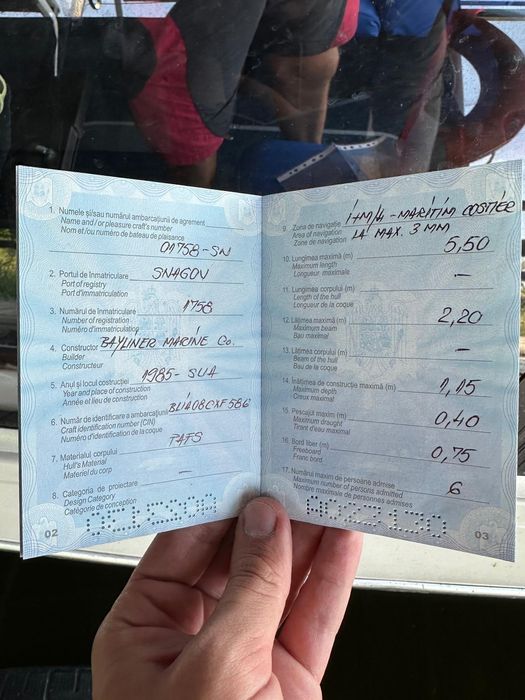 1. Numele și/sau numărul ambarcațiunii de agrement
Name and / or pleasure craft's number
Nom et/ou numéro de bateau de plaisance
01758-SN
2. Portul de înmatriculare SNAGOV
Port of registry
Port d'immatriculation
3. Numărul de înmatriculare 1758
Number of registration
Numéro d'immatriculation
4. Constructor BAYLINER MARINE Co.
Builder
Constructeur
5. Anul și locul construcției 1985-SUA
Year and place of construction
Année et lieu de construction
6. Număr de identificare a ambarcațiunii
Craft identification number (CIN)
Numéro d'identification de la coque
7. Materialul corpului PAFS
Hull's Material
Materiel du corp
8. Categoria de proiectare –
Design Category
Catégorie de conception
02
9. Zona de navigație I+M/4-MARITIM COSTIER
Area of navigation LA MAX. 3 MM
Zone de navigation
10. Lungimea maximă (m) 5,50
Maximum length
Longueur maximale
11. Lungimea corpului (m) –
Length of the hull
Longueur de la coque
12. Lățimea maximă (m) 2,20
Maximum beam
Bau maximal
13. Lățimea corpului (m) –
Beam of the hull
Bau de la coque
14. Înălțimea de construcție maximă (m) 1,15
Maximum depth
Creux maximal
15. Pescajul maxim (m) 0,40
Maximum draught
Tirant d'eau maximal
16. Bord liber (m) 0,75
Freeboard
Franc bord
17. Numărul maxim de persoane admise 6
Maximum number of persons admitted
Nombre maximale de personnes admises
03